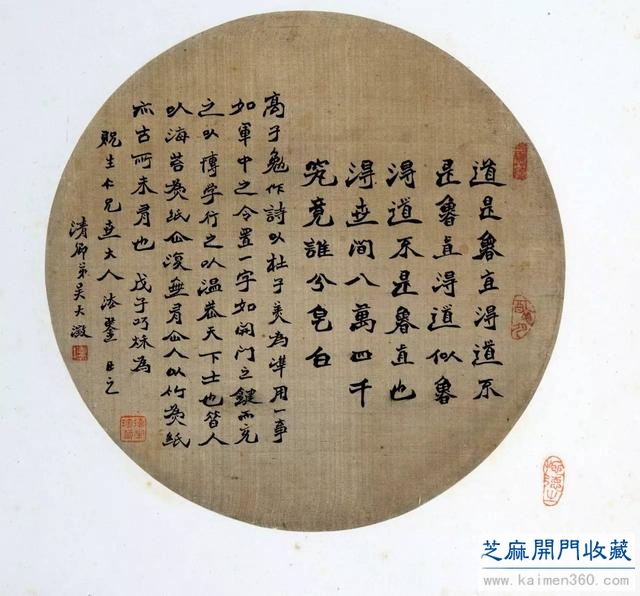 道是魯直得道不
是魯直得道似魯
得道不是魯直也
得世間八萬四千
究竟誰兮皂白
高子勉作詩以杜子美為準用一事
如軍中之令置一字如關門之鍵而充
之以博學行之以溫恭天下士也昔人
以海苔為紙今復無有今人以竹為紙
亦古所未有也 戊子巧秋為
貺生仁兄世大人法鑒
清卿弟吳大澂
芝麻開門收藏
www.kaimen360.com